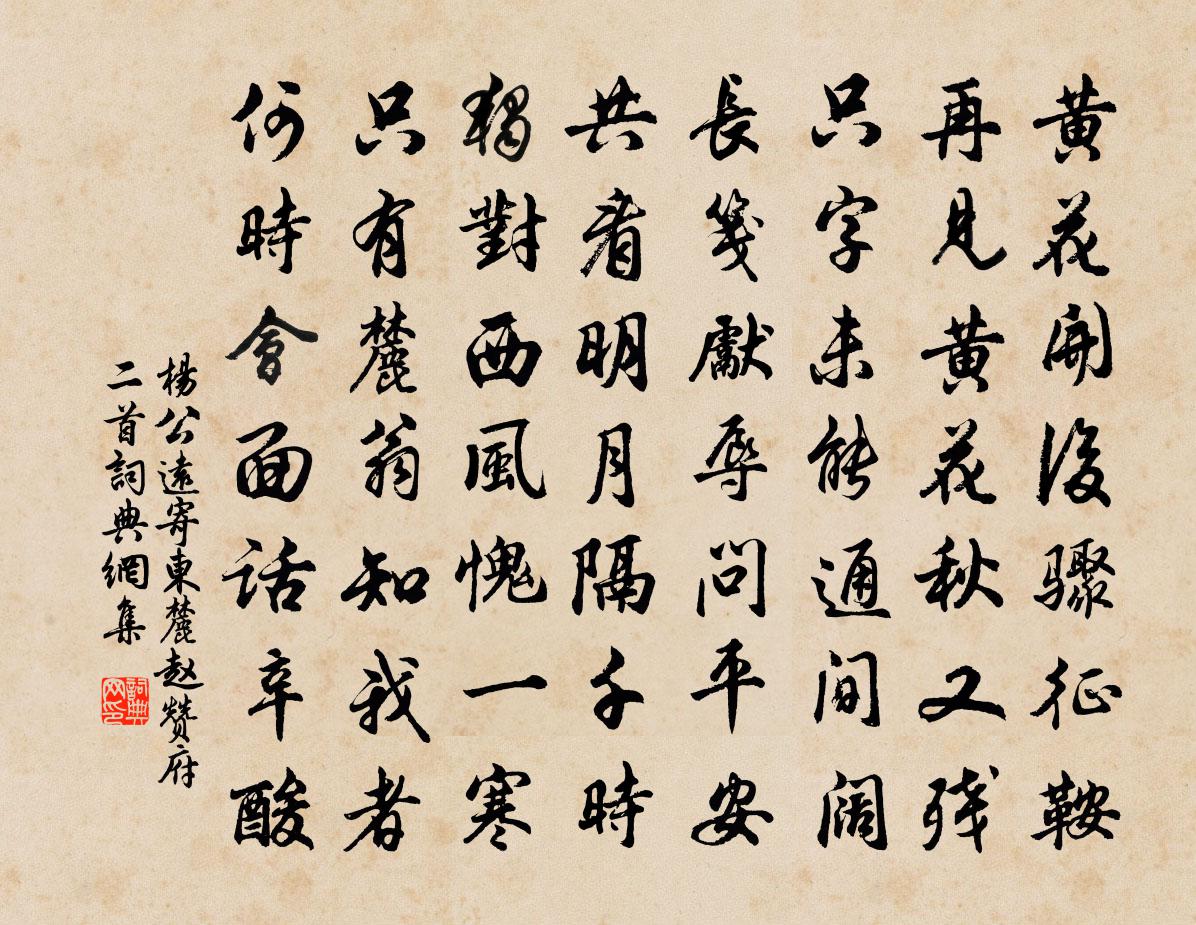 黃花開後驟征鞍
再見黃花秋又殘
只字未能通間闊
長箋獻辱問平安
共看明月隔千時
獨對西風愧一寒
只有麓翁知我者
何時會面話辛酸
楊公遠寄東麓趙贊府
二首詞典網集
詞典
网印